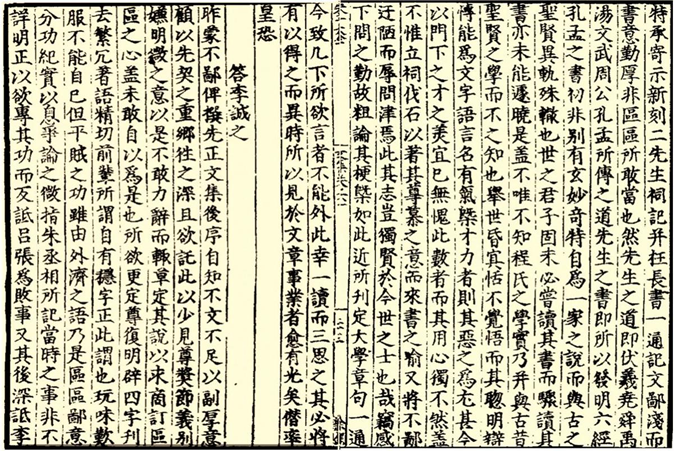 特承寄示新刻二先生祠記并枉長書一通記文鄙淺而
書意勤厚非區區所敢當也然先生之道即伏羲堯舜禹
湯文武周公孔孟所傳之道先生之書即所以發明六經
孔孟之書初非別有玄妙奇特自為一家之說而與古之
聖賢異軌殊轍也世之君子固未必嘗讀其書而驟讀其
書亦未能遽曉是蓋不唯不知程氏之學實乃并與古昔
聖賢之學而不之知也舉世昏宜恬不覺悟而其聰明辯
博能為文字語言名有氣槩才力者則其惡之為尤甚今
以門下之才之美宜已無愧此數者而其用心獨不然蓋
不惟立祠伐石以著其尊慕之意而來書之喻又將不鄙
迂陋而辱問津焉此其志豈獨賢於今世之士也哉竊感
下問之勤故粗論其梗槩如此近所刊定大學章句一通
今致几下所欲言者不能外此幸一讀而三思之其必將
有以得之而異時所以見於文章事業者愈有光矣僭率
皇恐
答李誠之
昨蒙不鄙俾撰先正文集後序自知不文不足以副厚意
顧以先契之重鄉往之深且欲託此以少見尊奬節義別
嫌明微之意以是不敢力辭而輙草定其說以求商訂區
區之心蓋未敢自以為是也所欲更定尊復明辟四字刊
去繁冗著語精切前輩所謂自有穩字正此謂也玩味歎
服不能自已但平賊之功雖由外濟之語乃是區區鄙意
分功紀實以息爭論之微指朱丞相所記當時之事非不
詳明正以欲專其功而反詆呂張為敗事又其後深詆李